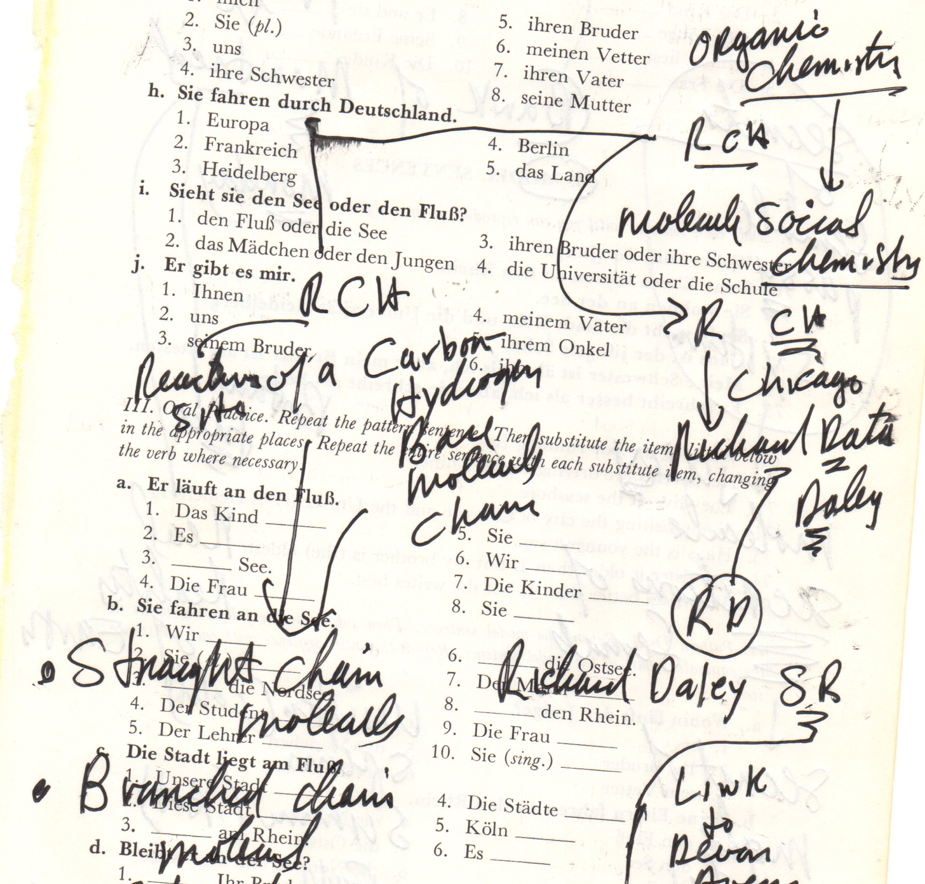 mich
2. Sie (pl.)
3. uns
4. ihre Schwester
5. ihren Bruder
6. meinen Vetter
7. ihren Vater
8. seine Mutter
h. Sie fahren durch Deutschland.
1. Europa
2. Frankreich
3. Heidelberg
4. Berlin
5. das Land
i. Sieht sie den See oder den Fluß?
1. den Fluß oder die See
2. das Mädchen oder den Jungen
3. ihren Bruder oder ihre Schwester
4. die Universität oder die Schule
j. Er gibt es mir.
1. Ihnen
2. uns
3. seinem Bruder
4. meinem Vater
ihrem Onkel
6.
III. Oral Practice. Repeat the pattern sentence. Then substitute the items below
in the appropriate places. Repeat the entire sentence with each substitute item, changing
the verb where necessary.
a. Er läuft an den Fluß.
1. Das Kind ______
2. Es ______
3. ______ See.
4. Die Frau ______
5. Sie ______
6. Wir ______
7. Die Kinder ______
8. Sie ______
b. Sie fahren an die See.
1. Wir ______
2. Sie
3. ______ die Nordsee.
4. Der Student
5. Der Lehrer ______
6. ______ die Ostsee.
7.
8. ______ den Rhein.
9. Die Frau ______
10. Sie (sing.) ______
c. Die Stadt liegt am Fluß.
1. Unsere Stadt
2. Diese Stadt
3. ______ am Rhein.
4. Die Städte ______
5. Köln ______
6. Es ______
d. Bleibt er an der See?
1.
Organic
Chemistry
RCH
molecule Social
Chemistry
R CH
Chicago
Richard Data
Daley
RD
Richard Daley SR
Link
to
Devon
RCH
of a Carbon
Hydrogen
Base
molecule
chain
Straight chain
molecule
Branched chain
molecule